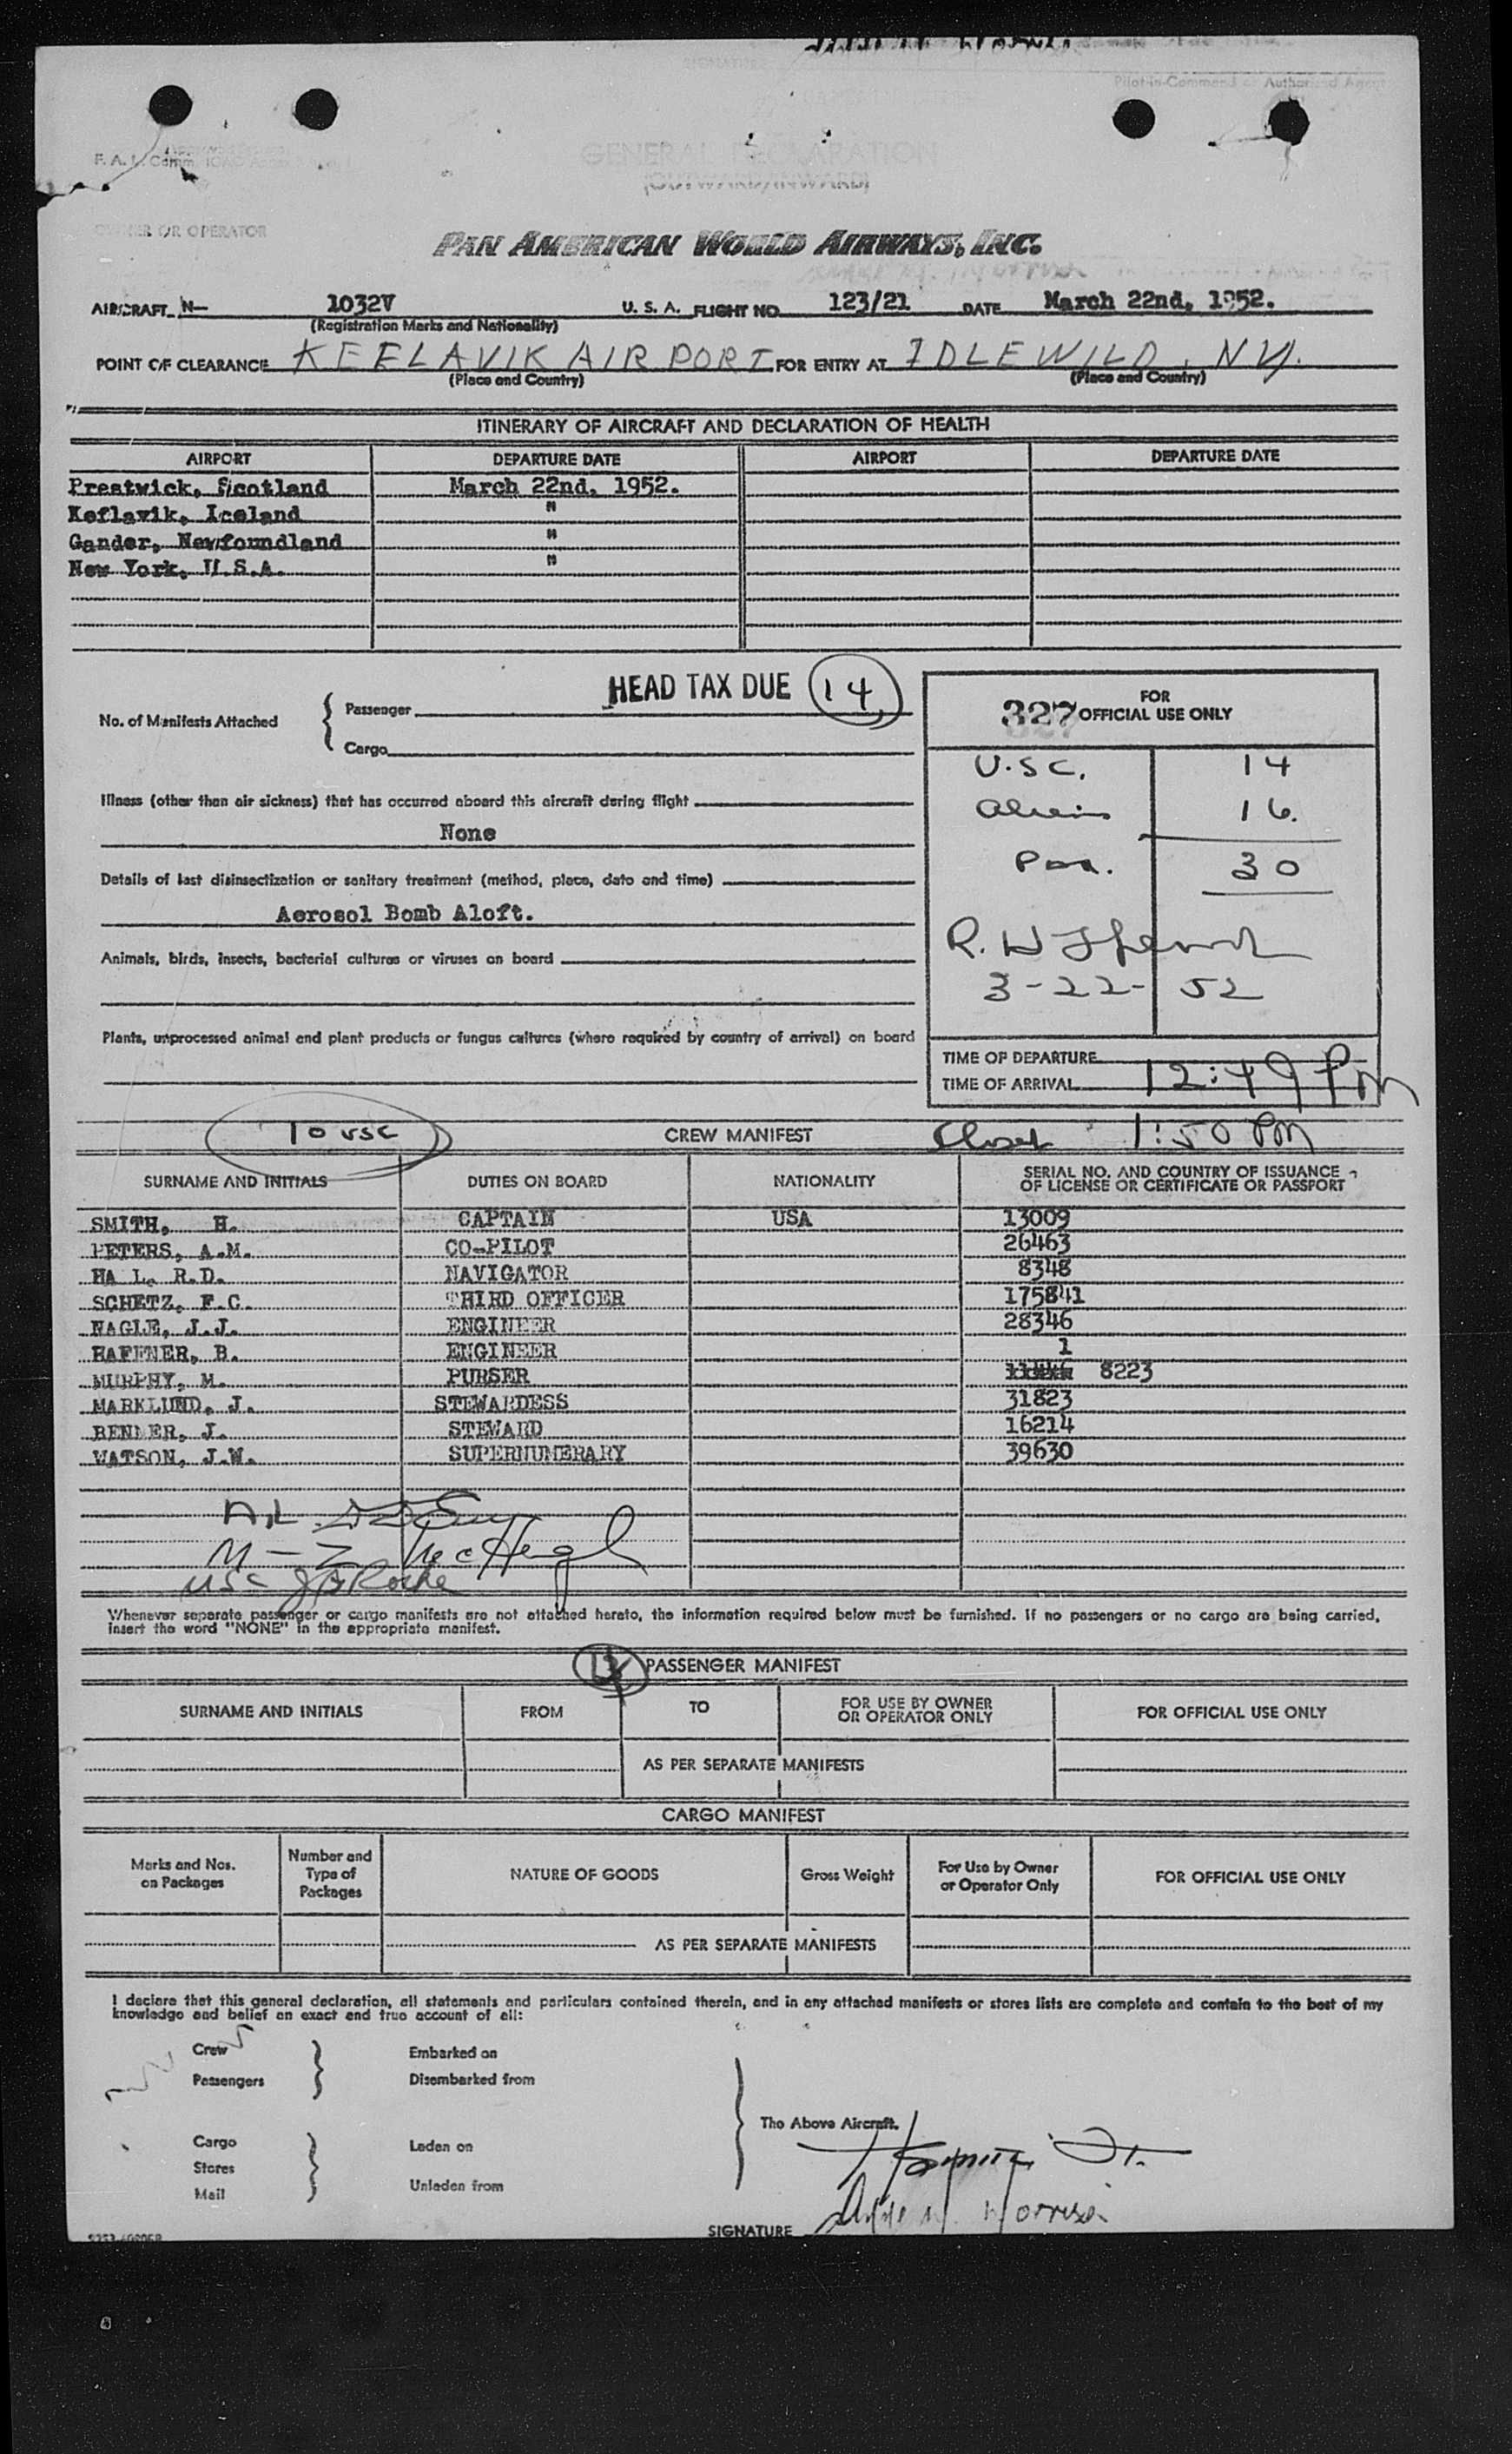 Pilot-in-Command or Authorized Agent
GENERAL DECLARATION
(OUTWARD/INWARD)
OWNER OR OPERATOR
PAN AMERICAN WORLD AIRWAYS, INC.
AIRCRAFT N- 1032V U. S. A. FLIGHT NO. 123/21 DATE March 22nd, 1952.
(Registration Marks and Nationality)
POINT OF CLEARANCE KEELAVIK AIRPORT FOR ENTRY AT IDLEWILD, NY.
(Place and Country) (Place and Country)
ITINERARY OF AIRCRAFT AND DECLARATION OF HEALTH
AIRPORT DEPARTURE DATE AIRPORT DEPARTURE DATE
Prestwick, Scotland March 22nd, 1952.
Keflavik, Iceland "
Gander, Newfoundland "
New York, U.S.A. "
HEAD TAX DUE 14
No. of Manifests Attached { Passenger
Cargo
327 FOR OFFICIAL USE ONLY
U.S.C. 14
Aliens 16.
Pax. 30
3-22-52
Illness (other than air sickness) that has occurred aboard this aircraft during flight
None
Details of last disinsectization or sanitary treatment (method, place, date and time)
Aerosol Bomb Aloft.
Animals, birds, insects, bacterial cultures or viruses on board
Plants, unprocessed animal and plant products or fungus cultures (where required by country of arrival) on board
TIME OF DEPARTURE
TIME OF ARRIVAL 12:49 PM
10 USC CREW MANIFEST Closed 1:50 PM
SURNAME AND INITIALS DUTIES ON BOARD NATIONALITY SERIAL NO. AND COUNTRY OF ISSUANCE OF LICENSE OR CERTIFICATE OR PASSPORT
SMITH, H. CAPTAIN USA 13009
PETERS, A.M. CO-PILOT 26463
HA L, R.D. NAVIGATOR 8348
SCHETZ, F.C. THIRD OFFICER 175841
NAGLE, J.J. ENGINEER 28346
HAFFNER, B. ENGINEER 1
MURPHY, M. PURSER 8223
MARKLUND, J. STEWARDESS 31823
RENNER, J. STEWARD 16214
WATSON, J.W. SUPERNUMERARY 39630
A,L
M-Z
USC
Whenever separate passenger or cargo manifests are not attached hereto, the information required below must be furnished. If no passengers or no cargo are being carried,
insert the word "NONE" in the appropriate manifest.
PASSENGER MANIFEST
SURNAME AND INITIALS FROM TO FOR USE BY OWNER OR OPERATOR ONLY FOR OFFICIAL USE ONLY
AS PER SEPARATE MANIFESTS
CARGO MANIFEST
Marks and Nos. on Packages Number and Type of Packages NATURE OF GOODS Gross Weight For Use by Owner or Operator Only FOR OFFICIAL USE ONLY
AS PER SEPARATE MANIFESTS
I declare that this general declaration, all statements and particulars contained therein, and in any attached manifests or stores lists are complete and contain to the best of my
knowledge and belief an exact and true account of all:
Crew Embarked on
Passengers Disembarked from
The Above Aircraft.
Cargo Laden on
Stores
Mail Unladen from
SIGNATURE